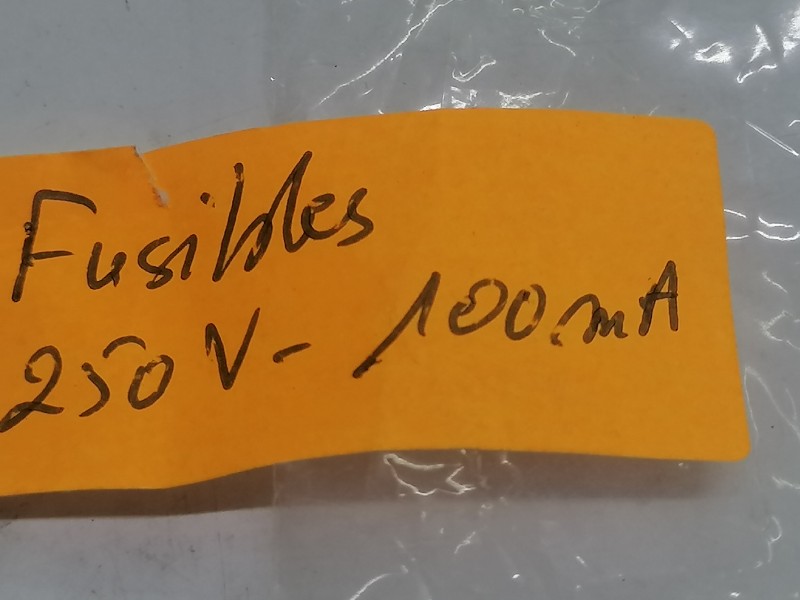 Fusibles
250V - 100mA